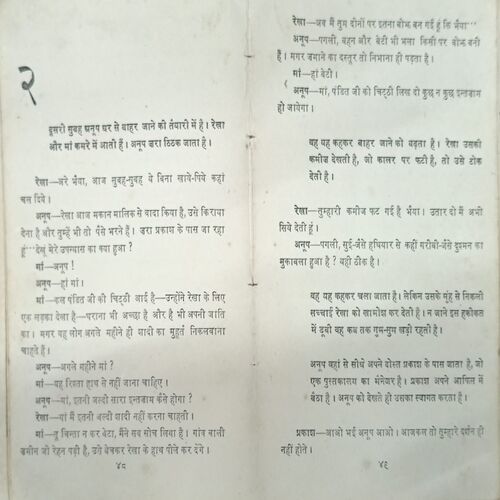 २
दूसरी सुबह अनूप घर से बाहर जाने की तैयारी में है। रेखा
और मां कमरे में आती हैं। अनूप ज़रा ठिठक जाता है।
रेखा—अरे भैया, आज सुबह-सुबह ये बिना खाये-पिये कहां
चल दिये।
अनूप—रेखा आज मकान मालिक से वादा किया है, उसे किराया
देना है और तुम्हें भी तो पैसे भरने हैं। ज़रा प्रकाश के पास जा रहा
हूं···देखूं मेरे उपन्यास का क्या हुआ ?
मां—अनूप !
अनूप—हां मां।
मां—कल पंडित जी की चिट्ठी आई है—उन्होंने रेखा के लिए
एक लड़का देखा है—घराना भी अच्छा है और है भी अपनी जाति
का। मगर वह लोग अगले महीने ही शादी का मुहूर्त निकलवाना
चाहते हैं।
अनूप—अगले महीने मां ?
मां—यह रिश्ता हाथ से नहीं जाना चाहिए।
अनूप—मां, इतनी जल्दी सारा इन्तज़ाम कैसे होगा ?
रेखा—मां मैं इतनी जल्दी शादी नहीं करना चाहती।
मां—तू चिन्ता न कर बेटा, मैंने सब सोच लिया है। गांव वाली
ज़मीन जो रेहन पड़ी है, उसे बेचकर रेखा के हाथ पीले कर देंगे।
४८
रेखा—अब मैं तुम दोनों पर इतना बोझ बन गई हूं कि भैया···
अनूप—पगली, बहन और बेटी भी भला किसी पर बोझ बनी
हैं। मगर ज़माने का दस्तूर तो निभाना ही पड़ता है।
मां—हां बेटी।
अनूप—मां, पंडित जी को चिट्ठी लिख दो कुछ न कुछ इन्तज़ाम
हो जायेगा।
यह कहकर बाहर जाने को बढ़ता है। रेखा उसकी
कमीज देखती है, जो कालर पर फटी है, तो उसे टोक
देती है।
रेखा—तुम्हारी कमीज फट गई है भैया। उतार दो मैं अभी
सिये देती हूं।
अनूप—पगली, सुई-जैसे हथियार से कहीं गरीबी-जैसे दुश्मन का
मुकाबला हुआ है ? यही ठीक है।
यह कहकर चला जाता है। लेकिन उसके मुंह से निकली
सच्चाई रेखा को खामोश कर देती है। न जाने इस हकीकत
में डूबी वह कब तक गुम-सुम खड़ी रहती है।
अनूप वहां से सीधे अपने दोस्त प्रकाश के पास जाता है, जो
एक पुस्तकालय का मैनेजर है। प्रकाश अपने आफिस में
बैठा है। अनूप को देखते ही उसका स्वागत करता है।
प्रकाश—आओ भई अनूप आओ। आजकल तो तुम्हारे दर्शन ही
नहीं होते।
४९